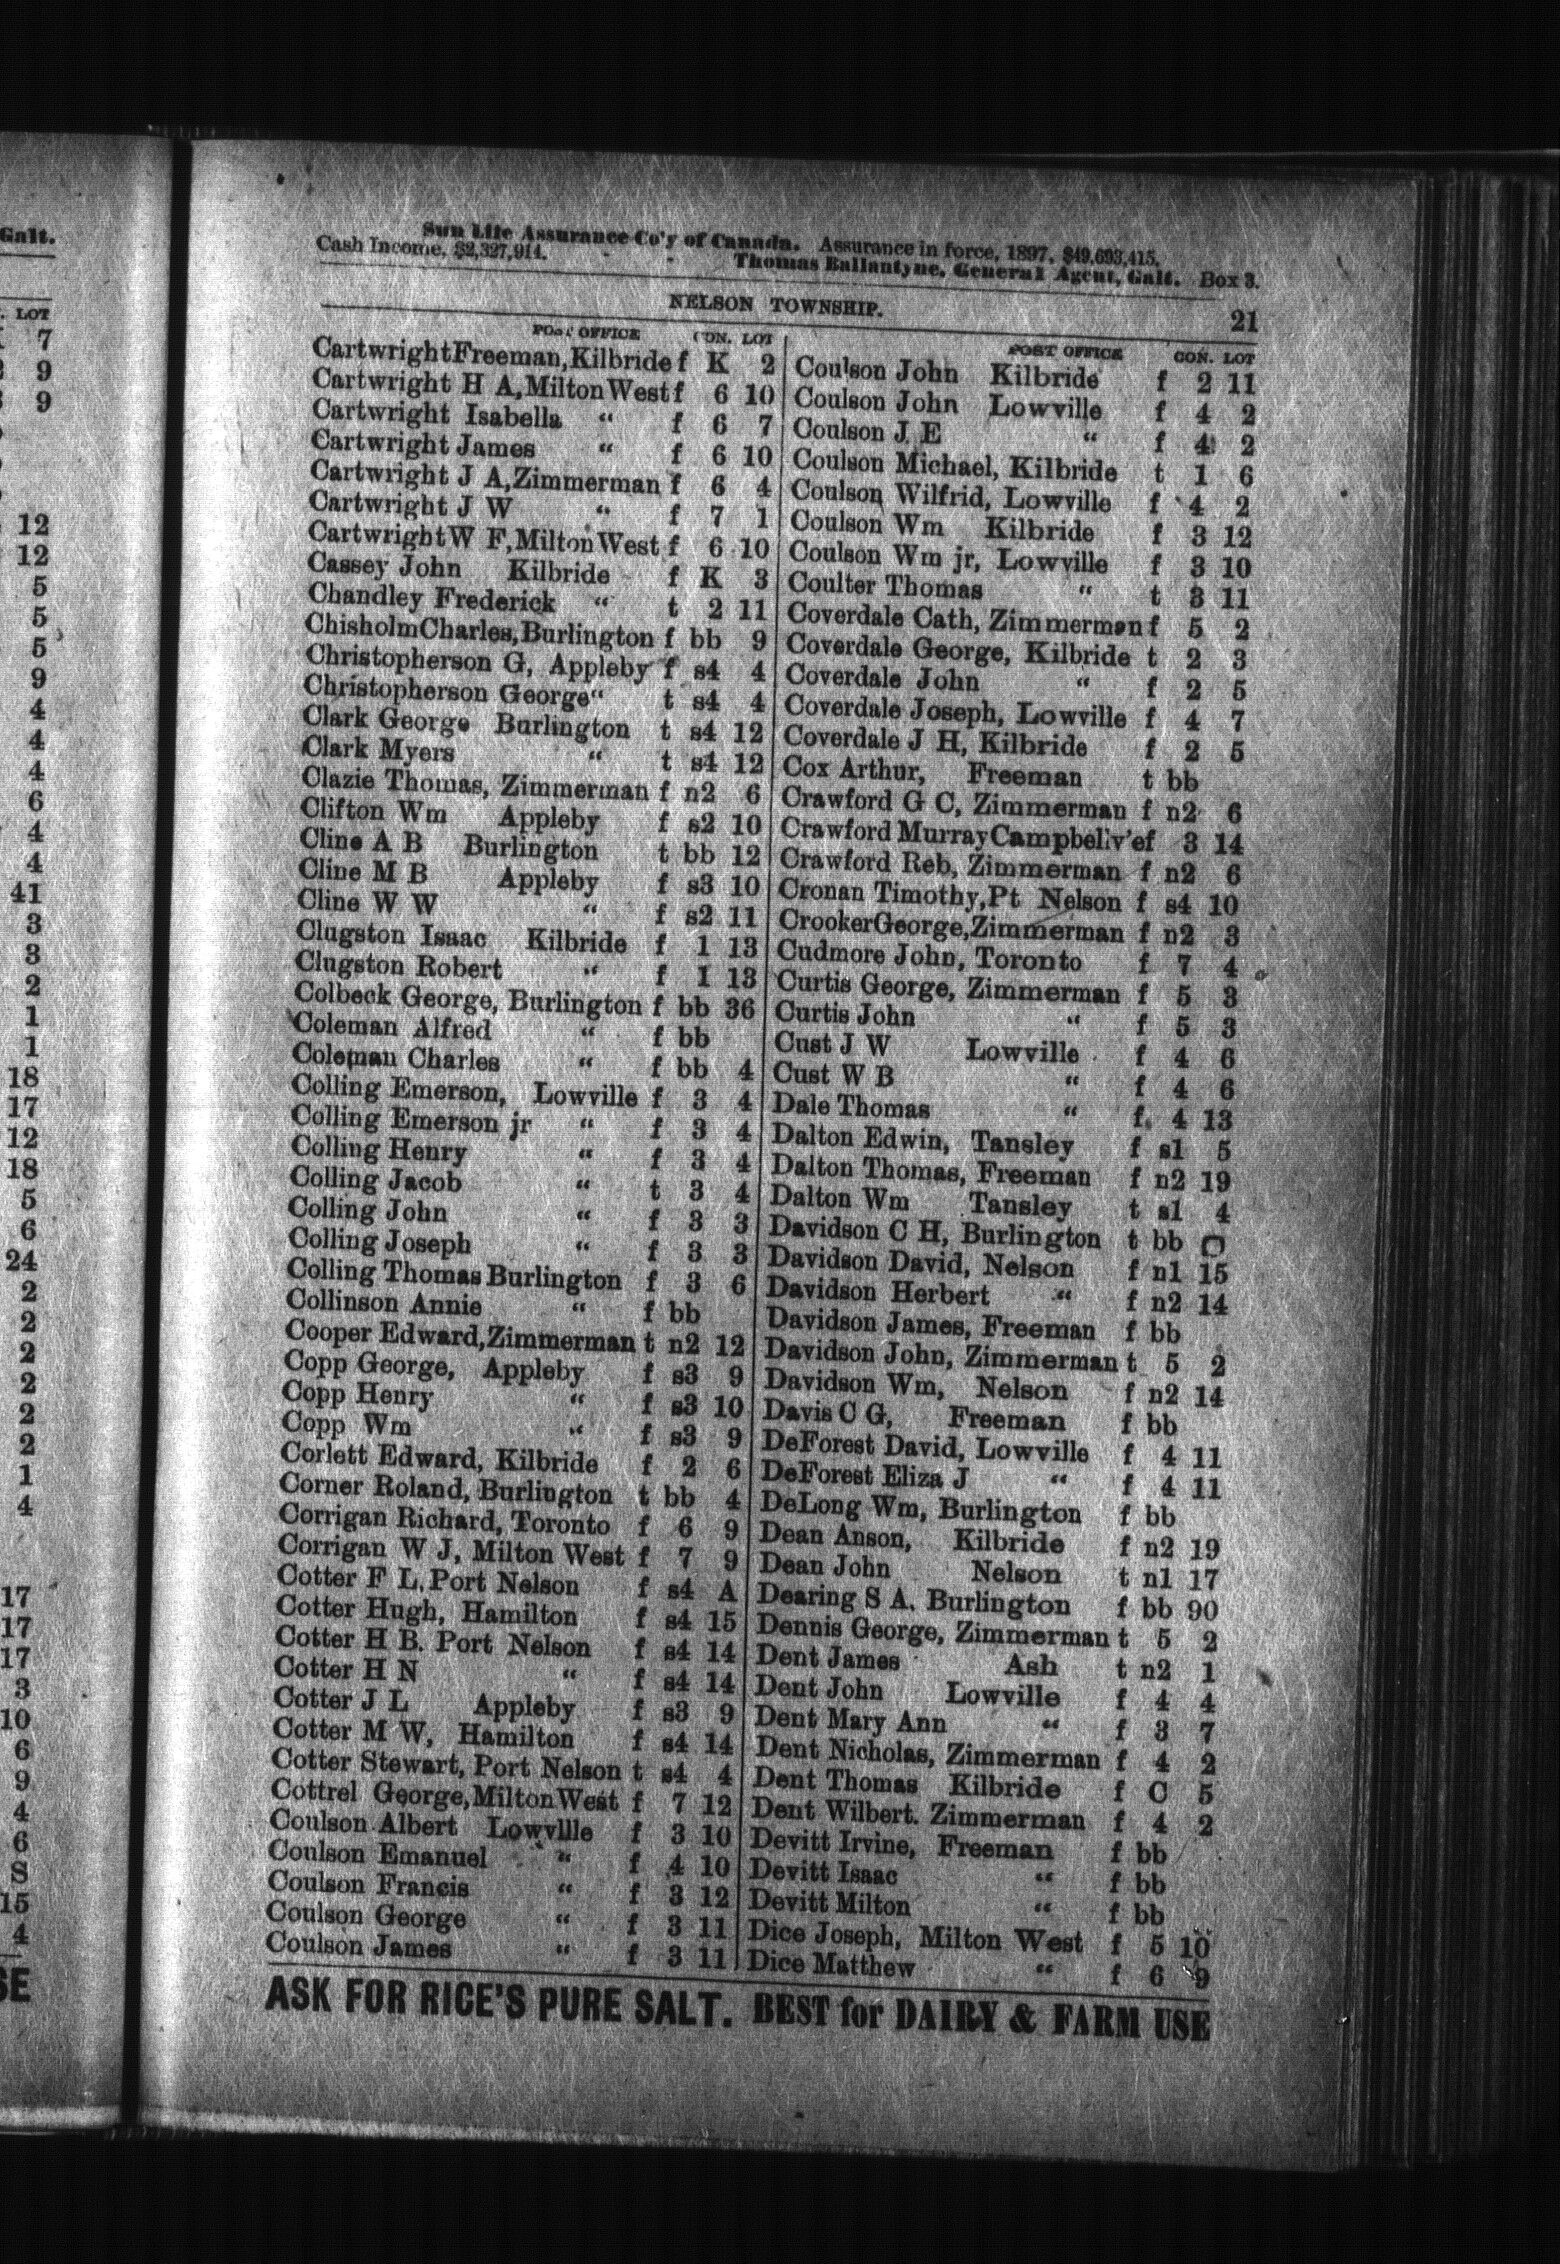 Galt.
LOT
7
9
9
12
12
5
5
5
9
4
4
4
6
4
4
41
3
3
2
1
1
18
17
12
18
5
6
24
2
2
2
2
2
2
1
4
17
17
17
3
10
6
9
4
6
S
15
4
SE
Sun Life Assurance Co'y of Canada. Assurance in force, 1897, $49,693,415.
Cash Income, $2,327,914. - - Thomas Ballantyne, General Agent, Galt. Box 3.
NELSON TOWNSHIP. 21
POST OFFICE CON. LOT
CartwrightFreeman,Kilbride f K 2
Cartwright H A,MiltonWest f 6 10
Cartwright Isabella “ f 6 7
Cartwright James “ f 6 10
Cartwright J A,Zimmerman f 6 4
Cartwright J W “ f 7 1
CartwrightW F,MiltonWest f 6 10
Cassey John Kilbride f K 3
Chandley Frederick “ t 2 11
ChisholmCharles,Burlington f bb 9
Christopherson G, Appleby f s4 4
Christopherson George“ t s4 4
Clark George Burlington t s4 12
Clark Myers “ t s4 12
Clazie Thomas, Zimmerman f n2 6
Clifton Wm Appleby f s2 10
Cline A B Burlington t bb 12
Cline M B Appleby f s3 10
Cline W W “ f s2 11
Clugston Isaac Kilbride f 1 13
Clugston Robert “ f 1 13
Colbeck George, Burlington f bb 36
Coleman Alfred “ f bb
Coleman Charles “ f bb 4
Colling Emerson, Lowville f 3 4
Colling Emerson jr “ f 3 4
Colling Henry “ f 3 4
Colling Jacob “ t 3 4
Colling John “ f 3 3
Colling Joseph “ f 3 3
Colling Thomas Burlington f 3 6
Collinson Annie “ f bb
Cooper Edward,Zimmerman t n2 12
Copp George, Appleby f s3 9
Copp Henry “ f s3 10
Copp Wm “ f s3 9
Corlett Edward, Kilbride f 2 6
Corner Roland, Burlington t bb 4
Corrigan Richard, Toronto f 6 9
Corrigan W J, Milton West f 7 9
Cotter F L, Port Nelson f s4 A
Cotter Hugh, Hamilton f s4 15
Cotter H B. Port Nelson f s4 14
Cotter H N “ f s4 14
Cotter J L Appleby f s3 9
Cotter M W, Hamilton f s4 14
Cotter Stewart, Port Nelson t s4 4
Cottrel George,MiltonWest f 7 12
Coulson Albert Lowville f 3 10
Coulson Emanuel “ f 4 10
Coulson Francis “ f 3 12
Coulson George “ f 3 11
Coulson James “ f 3 11
POST OFFICE CON. LOT
Coulson John Kilbride f 2 11
Coulson John Lowville f 4 2
Coulson J. E “ f 4 2
Coulson Michael, Kilbride t 1 6
Coulson Wilfrid, Lowville f 4 2
Coulson Wm Kilbride f 3 12
Coulson Wm jr, Lowville f 3 10
Coulter Thomas “ t 3 11
Coverdale Cath, Zimmerman f 5 2
Coverdale George, Kilbride t 2 3
Coverdale John “ f 2 5
Coverdale Joseph, Lowville f 4 7
Coverdale J H, Kilbride f 2 5
Cox Arthur, Freeman t bb
Crawford G C, Zimmerman f n2 6
Crawford MurrayCampbellv'ef 3 14
Crawford Reb, Zimmerman f n2 6
Cronan Timothy,Pt Nelson f s4 10
CrookerGeorge,Zimmerman f n2 3
Cudmore John, Toronto f 7 4
Curtis George, Zimmerman f 5 3
Curtis John “ f 5 3
Cust J W Lowville f 4 6
Cust W B “ f 4 6
Dale Thomas “ f 4 13
Dalton Edwin, Tansley f s1 5
Dalton Thomas, Freeman f n2 19
Dalton Wm Tansley t s1 4
Davidson C H, Burlington t bb
Davidson David, Nelson f n1 15
Davidson Herbert “ f n2 14
Davidson James, Freeman f bb
Davidson John, Zimmerman t 5 2
Davidson Wm, Nelson f n2 14
Davis C G, Freeman f bb
DeForest David, Lowville f 4 11
DeForest Eliza J “ f 4 11
DeLong Wm, Burlington f bb
Dean Anson, Kilbride f n2 19
Dean John Nelson t n1 17
Dearing S A. Burlington f bb 90
Dennis George, Zimmerman t 5 2
Dent James Ash t n2 1
Dent John Lowville f 4 4
Dent Mary Ann “ f 3 7
Dent Nicholas, Zimmerman f 4 2
Dent Thomas Kilbride f C 5
Dent Wilbert. Zimmerman f 4 2
Devitt Irvine, Freeman f bb
Devitt Isaac “ f bb
Devitt Milton “ f bb
Dice Joseph, Milton West f 5 10
Dice Matthew “ f 6 9
ASK FOR RICE'S PURE SALT. BEST for DAIRY & FARM USE